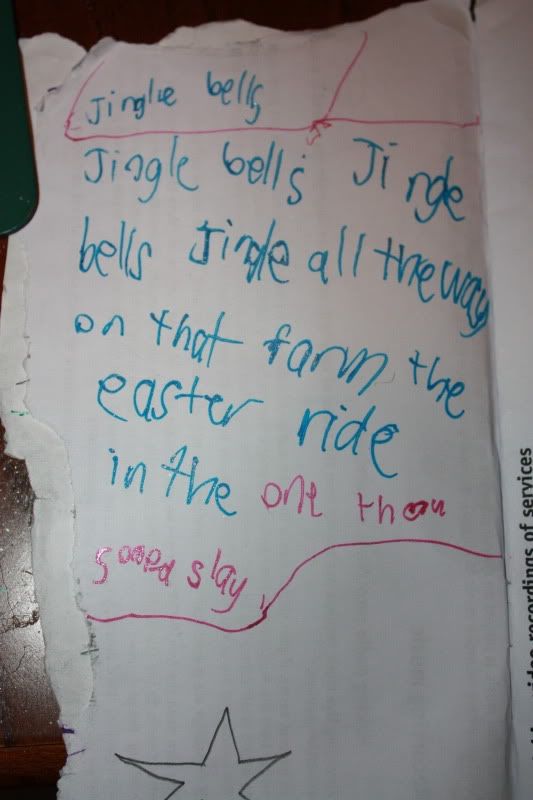 Jinglue bells
Jingle bells Jingle
bells Jingle all the way
on that farm the
easter ride
in the one thou
soand slay
video recordings of services